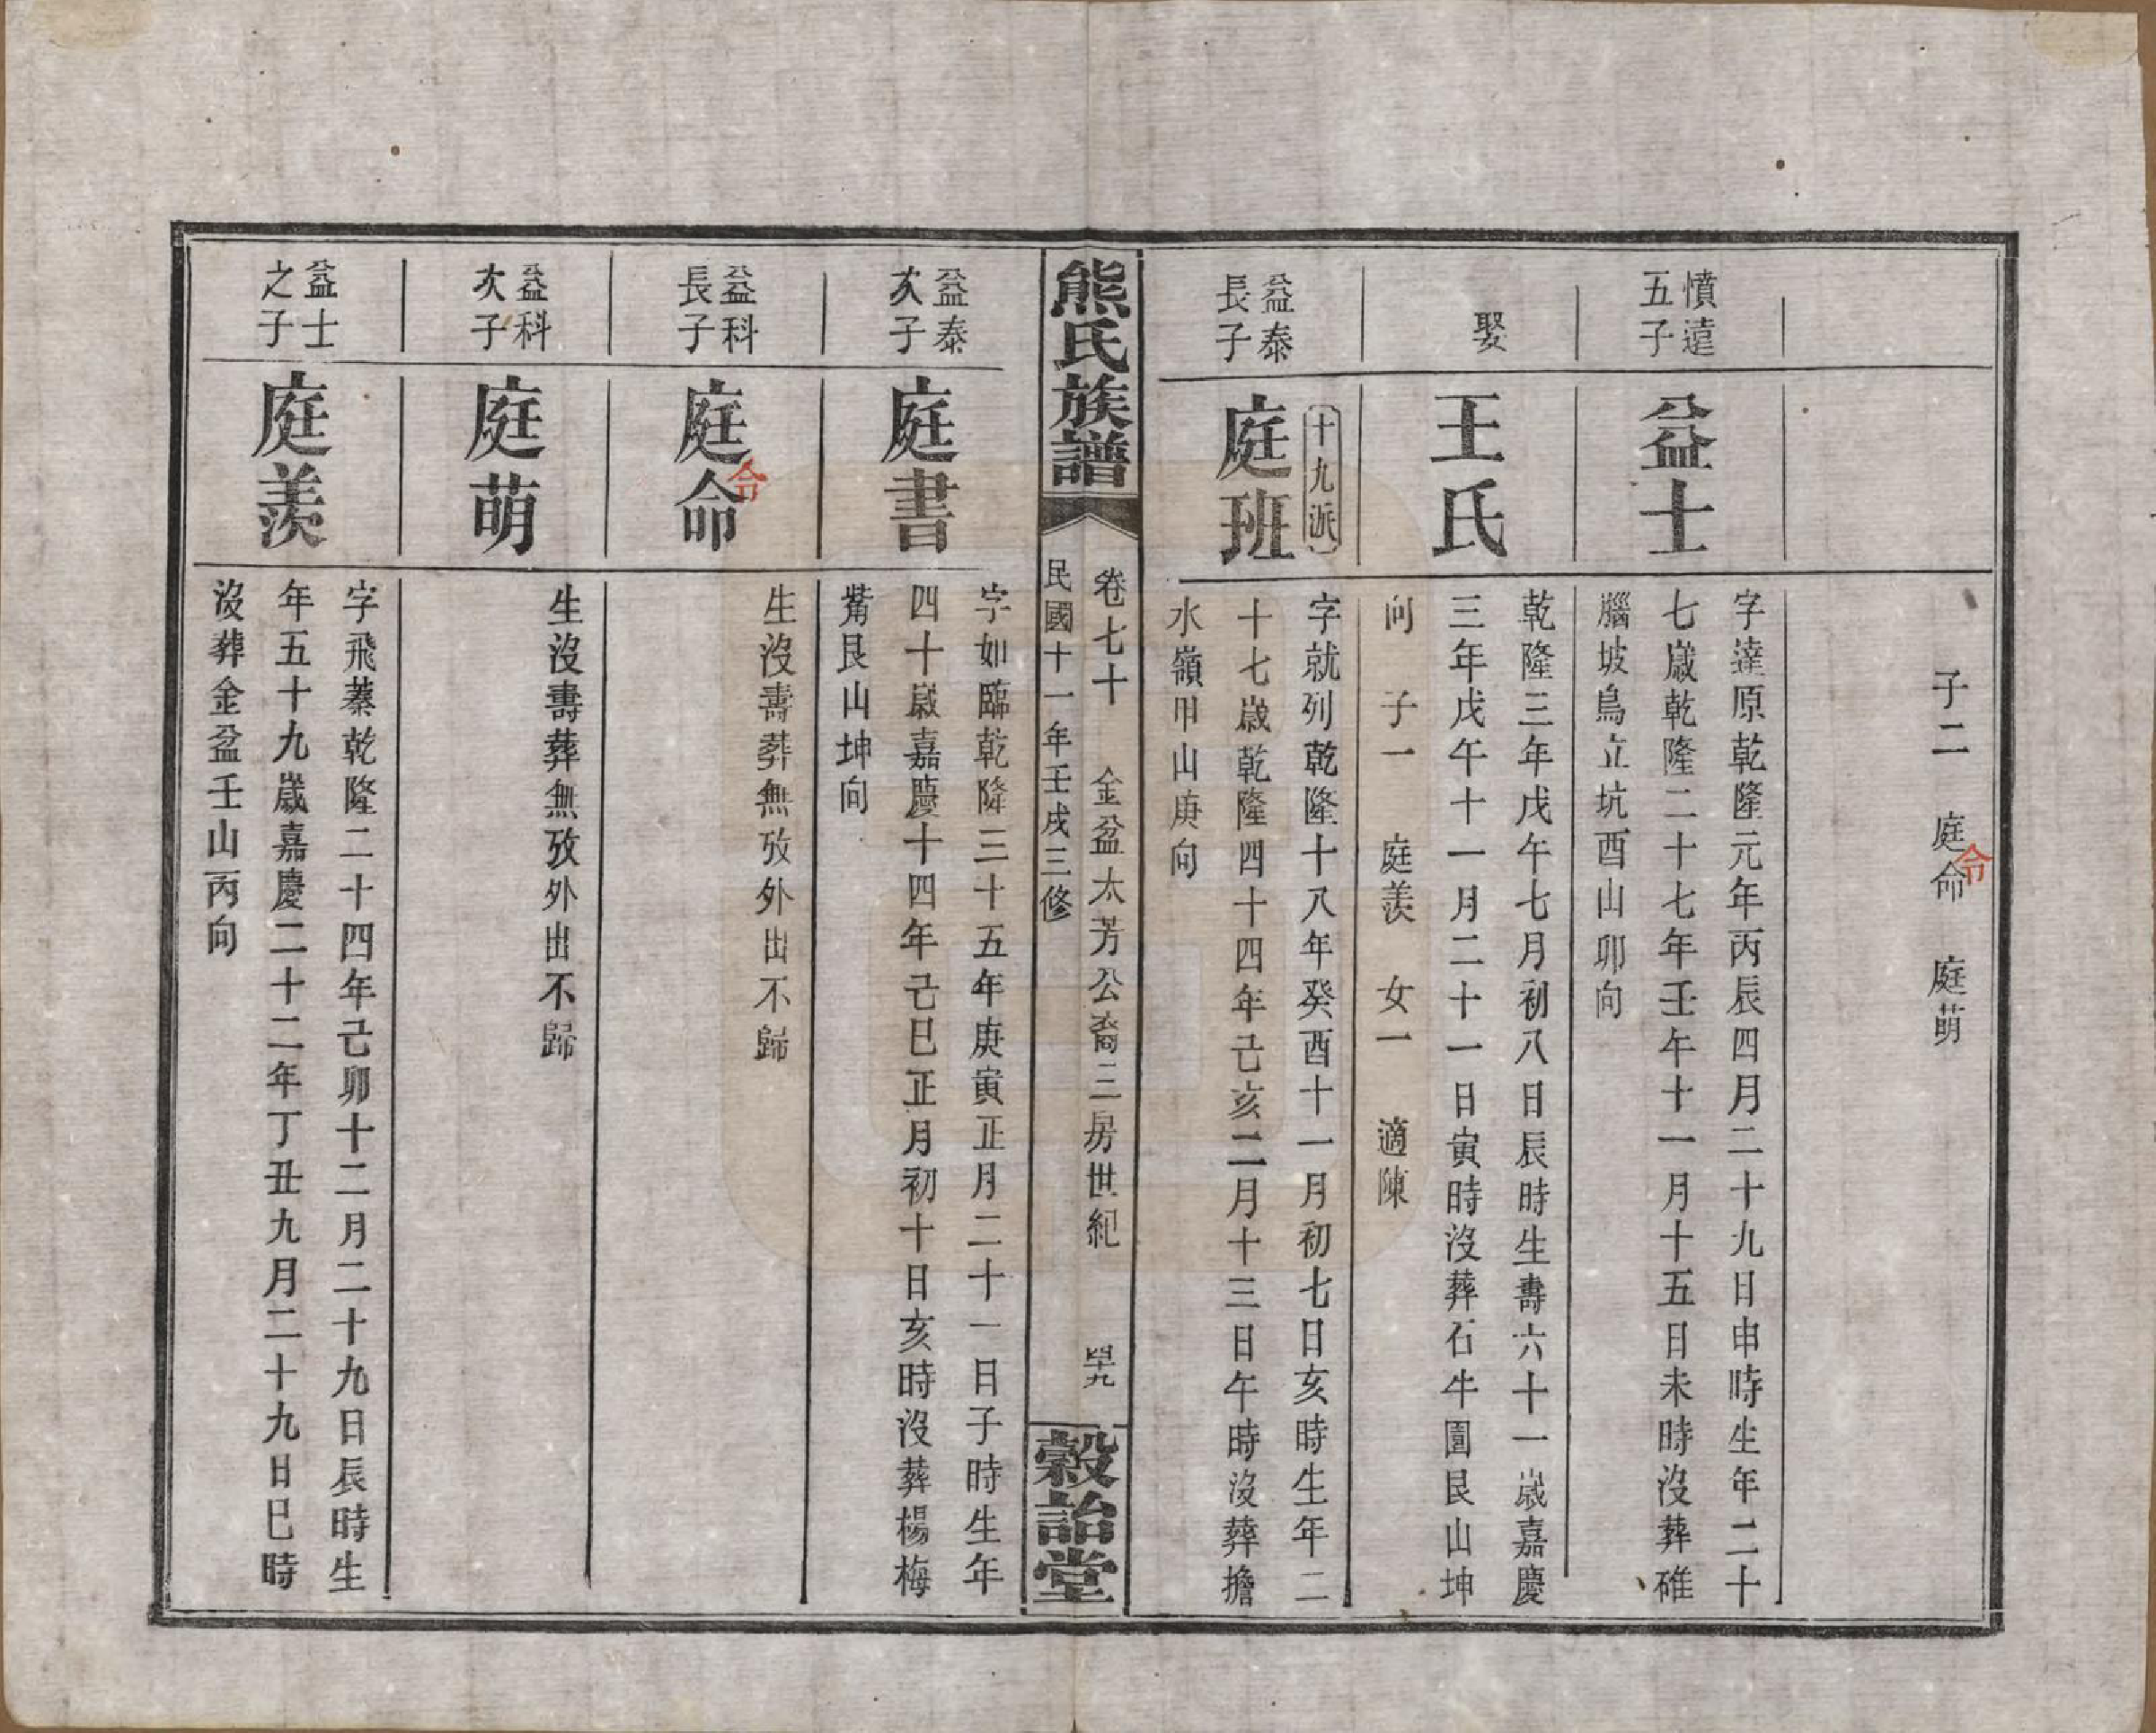 子二　庭命　庭萌
令
憤遠
五子
益士
字達原乾隆元年丙辰四月二十九日申時生年二十
七歲乾隆二十七年壬午十一月十五日未時沒葬碓
腦坡鳥立坑酉山卯向
娶
王氏
乾隆三年戊午七月初八日辰時生壽六十一歲嘉慶
三年戊午十一月二十一日寅時沒葬石牛園艮山坤
向　子一　庭羨　女一　適陳
益泰
長子
十九派
庭班
字就列乾隆十八年癸酉十一月初七日亥時生年二
十七歲乾隆四十四年己亥二月十三日午時沒葬擔
水嶺甲山庚向
熊氏族譜
卷七十　金盆太芳公裔三房世紀　四十九
民國十一年壬戌三修
穀詒堂
益泰
次子
庭書
字如臨乾隆三十五年庚寅正月二十一日子時生年
四十歲嘉慶十四年己巳正月初十日亥時沒葬楊梅
觜艮山坤向
益科
長子
庭命
令
生沒壽葬無攷外出不歸
益科
次子
庭萌
生沒壽葬無攷外出不歸
益士
之子
庭羨
字飛蓁乾隆二十四年己卯十二月二十九日辰時生
年五十九歲嘉慶二十二年丁丑九月二十九日巳時
沒葬金盆壬山丙向